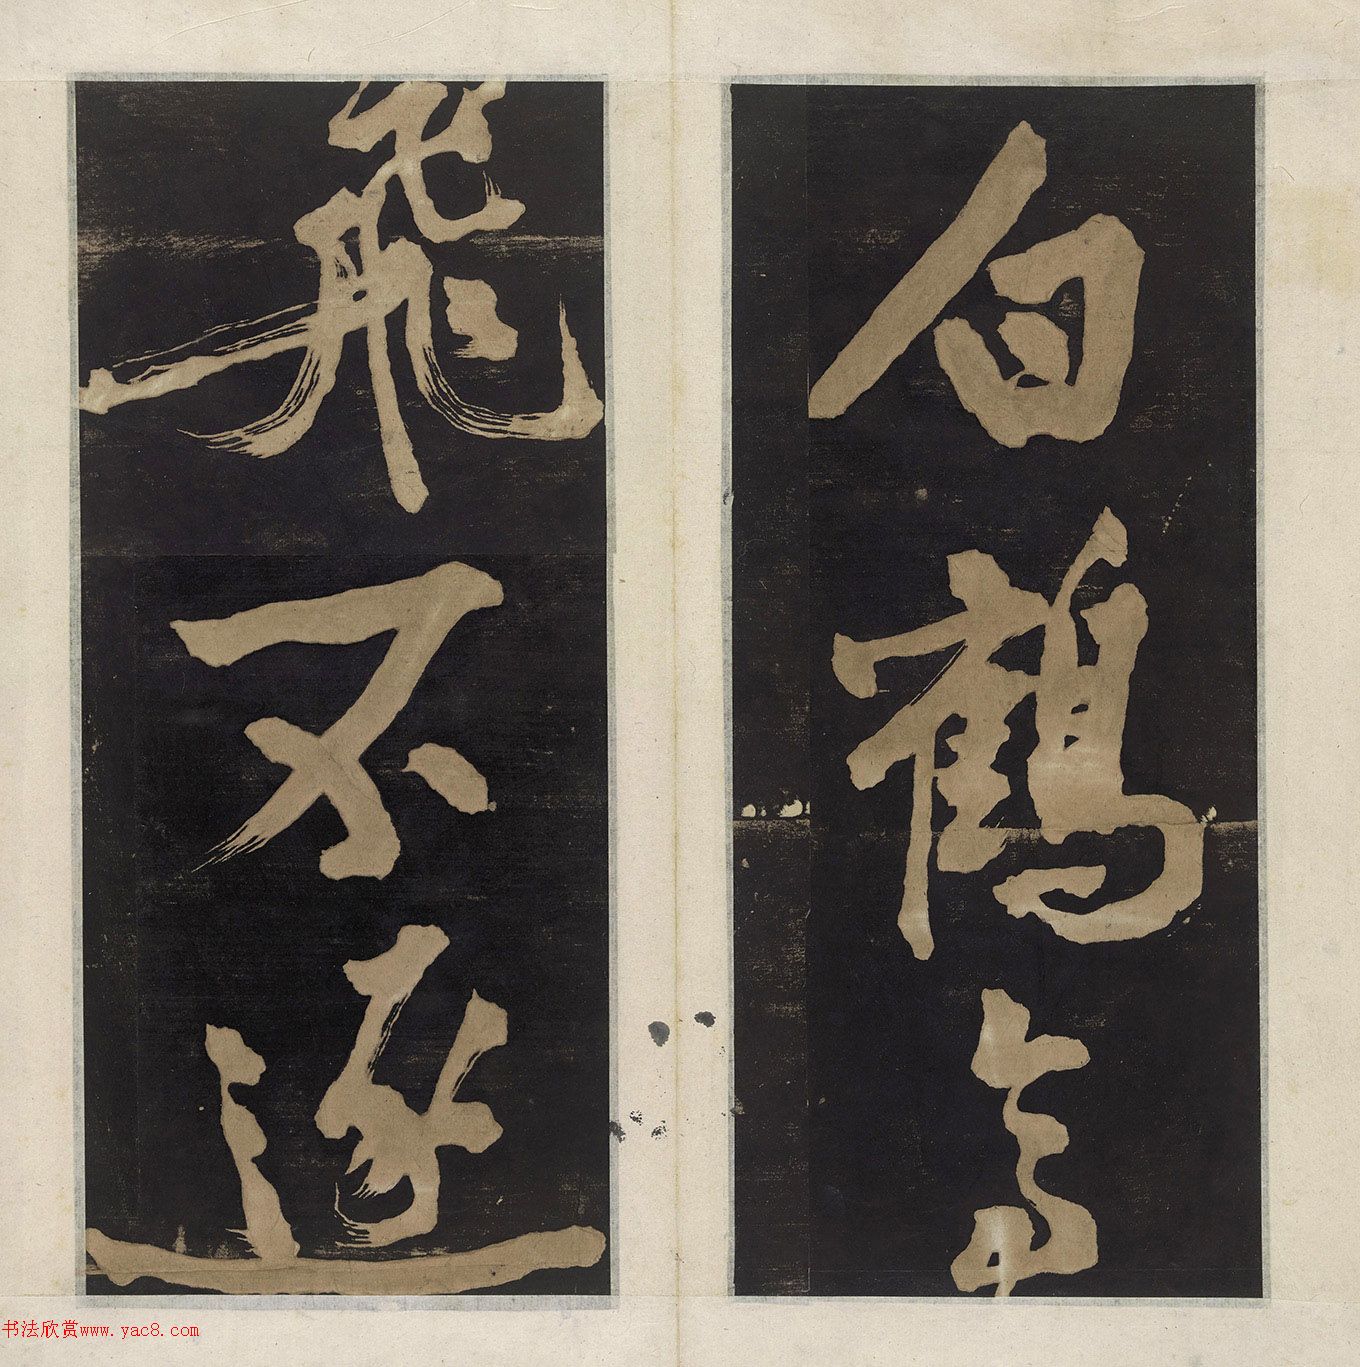 白鶴高
飛不逐
书法欣赏www.yac8.com